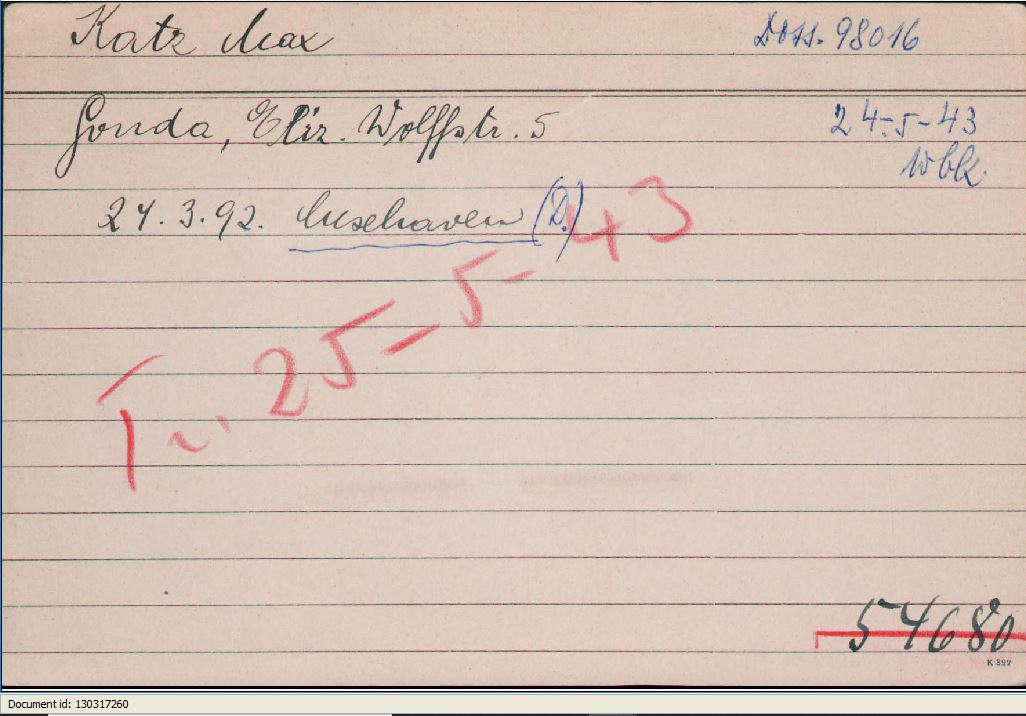 Katz Max
Doss. 98016
Gouda, Eliz. Wolffstr. 5
24-5-43
Wbk.
24.3.92. Cuxhaven (D.)
Tr. 25-5-43
54680
K 392
Document id: 130317260